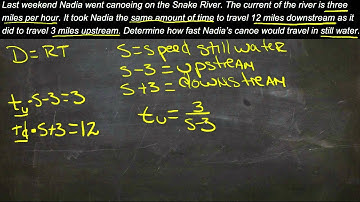 Last weekend Nadia went canoeing on the Snake River. The current of the river is three
miles per hour. It took Nadia the same amount of time to travel 12 miles downstream as it
did to travel 3 miles upstream. Determine how fast Nadia's canoe would travel in still water.
D=RT
S=Speed still water
S-3=upstream
S+3=downstream
tu·S-3=3
td·S+3=12
tu=3/S-3